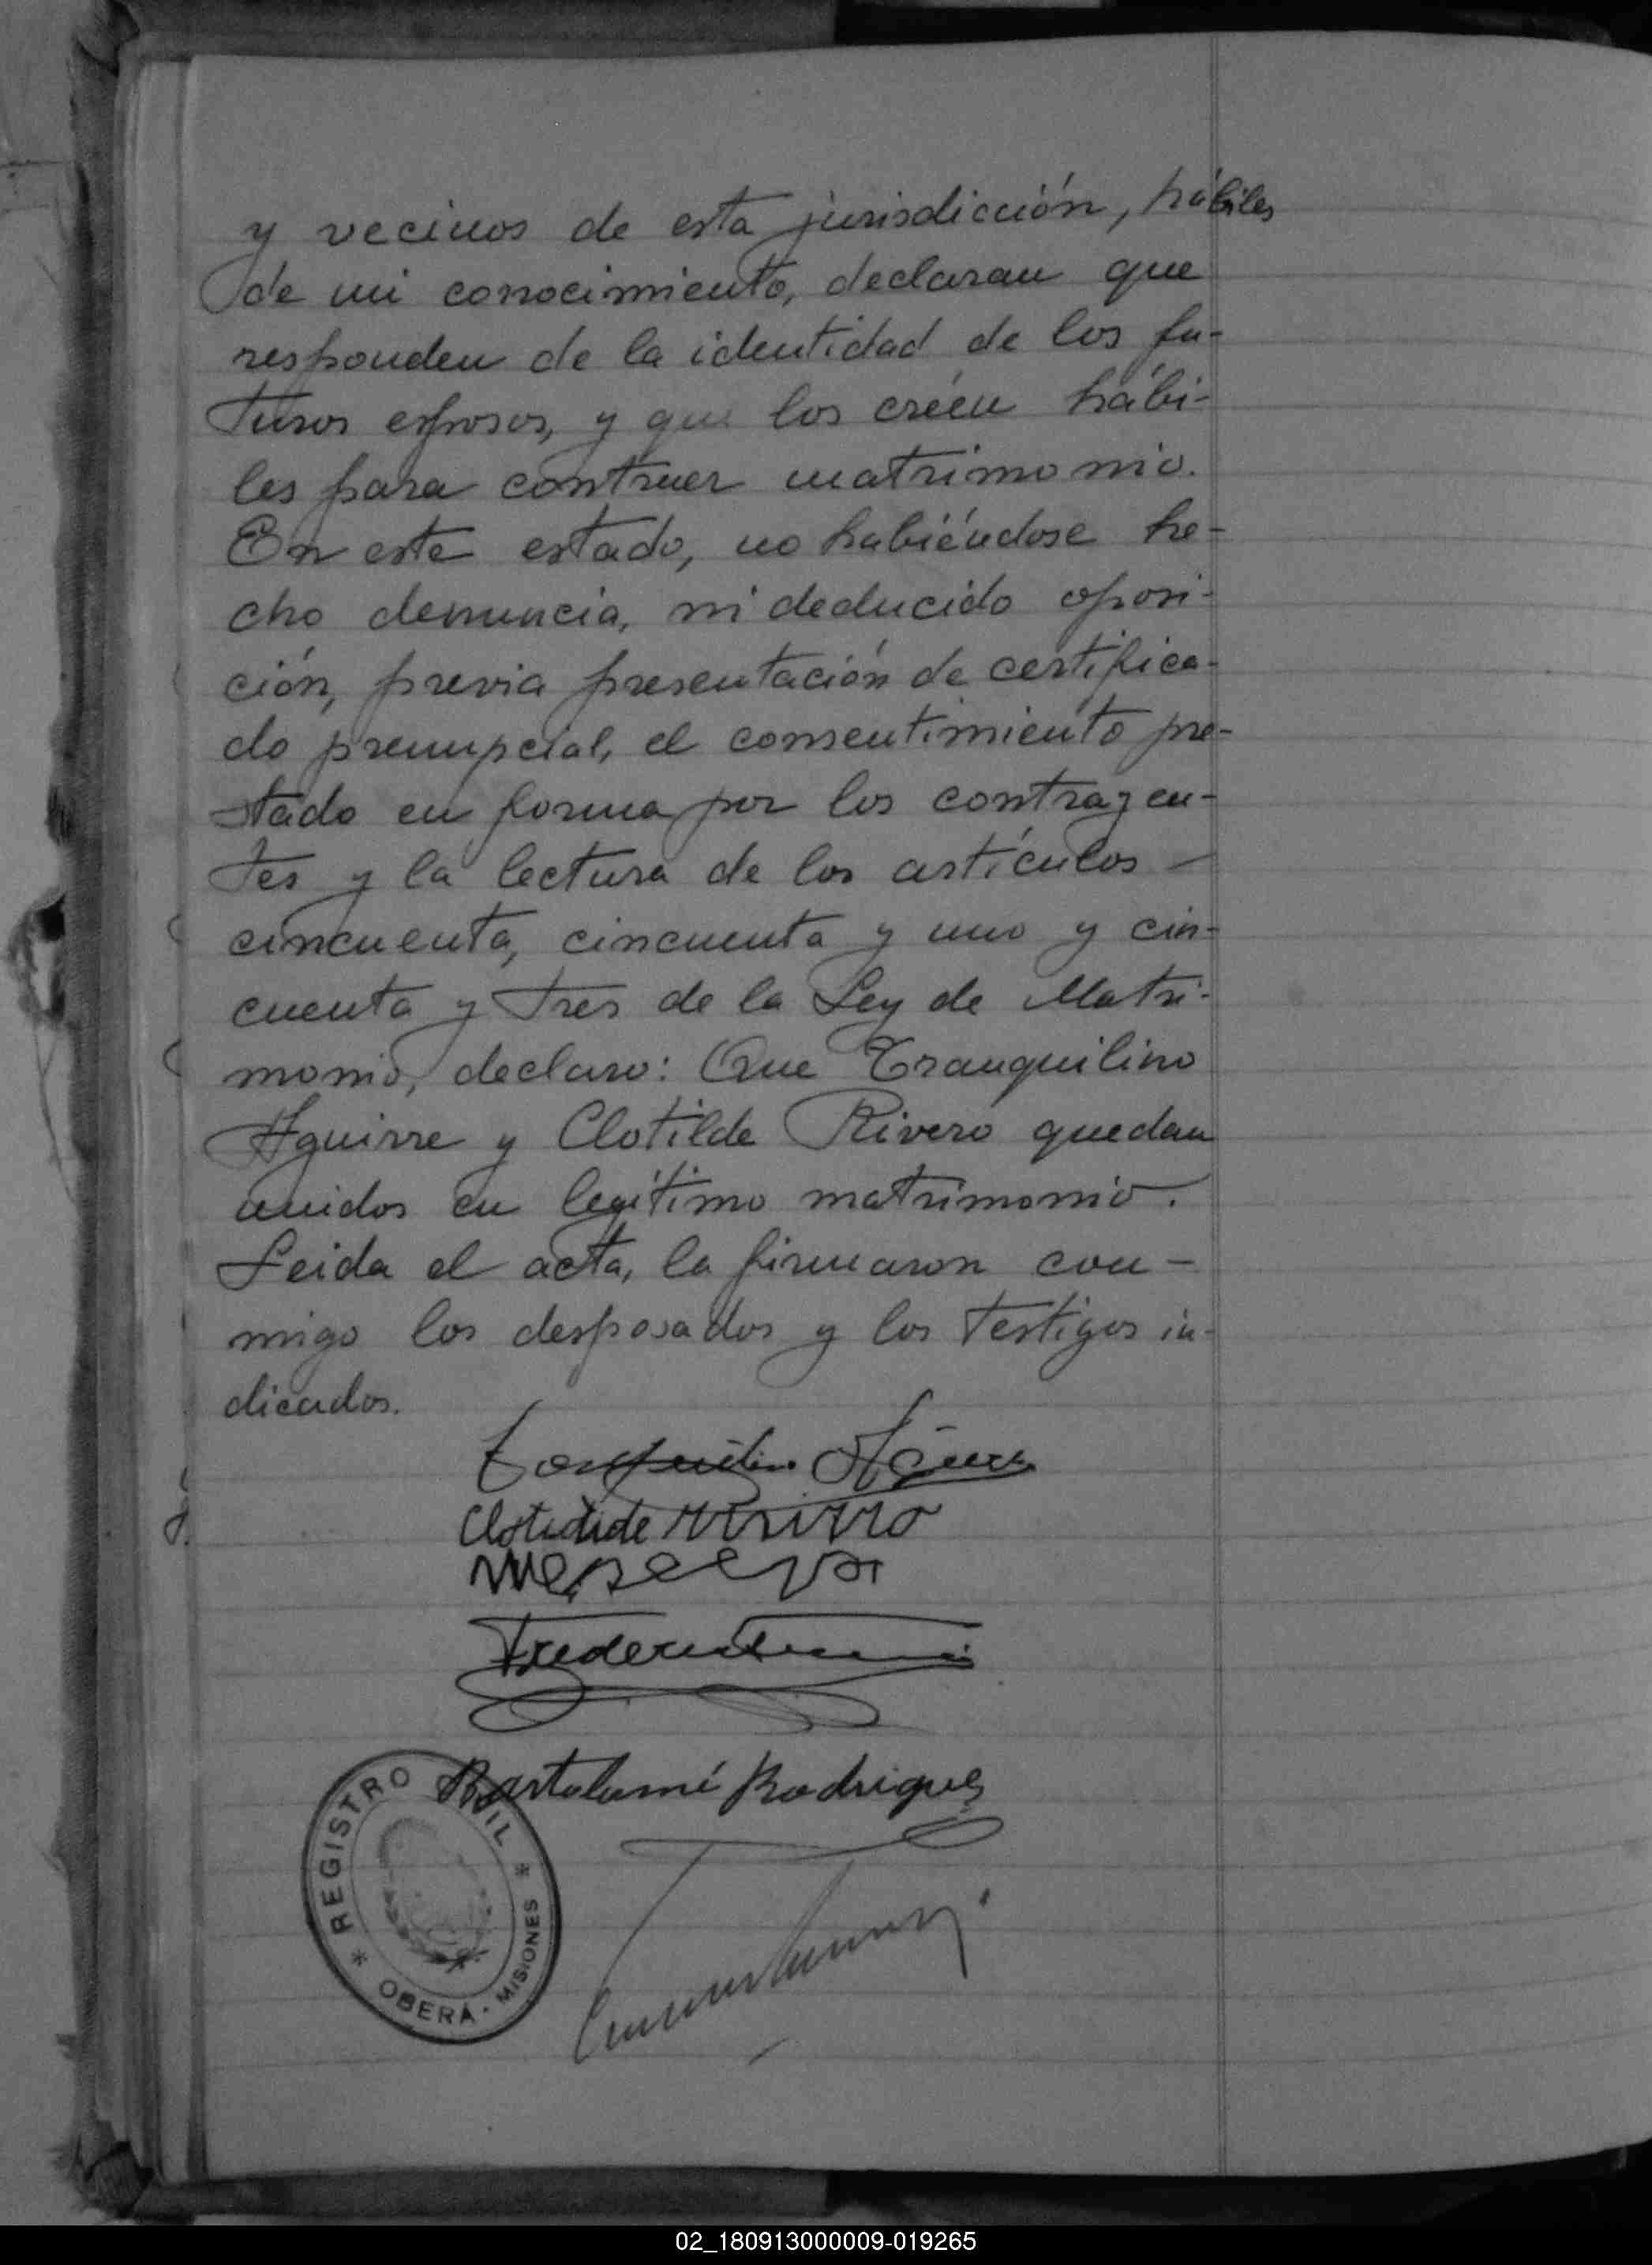 y vecinos de esta jurisdicción, hábiles
de mi conocimiento, declaran que
responden de la identidad de los fu-
turos esposos, y que los créen hábi-
les para contraer matrimonio.
En este estado, no habiéndose he-
cho denuncia, ni deducido oposi-
ción, previa presentación de certifica-
do prenupcial, el consentimiento pre-
stado en forma por los contrayen-
tes y la lectura de los artículos -
cincuenta, cincuenta y uno y cin-
cuenta y tres de la Ley de Matri-
monio, declaro: Que Tranquilino
Aguirre y Clotilde Rivero quedan
unidos en legítimo matrimonio.
Leida el acta, la firmaron con-
migo los desposados y los testigos in-
dicados.
Bartolomé Rodrigues
REGISTRO CIVIL
OBERÁ · MISIONES
02_180913000009-019265